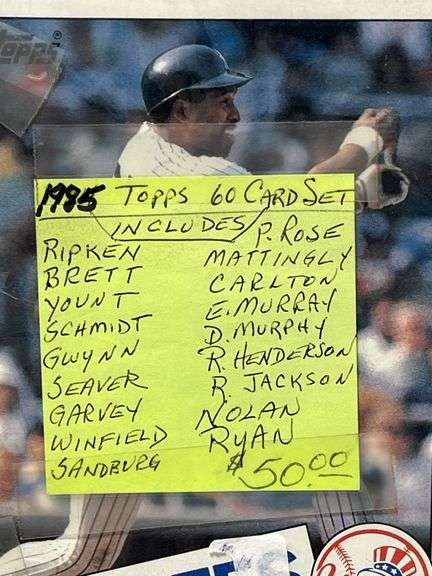 Topps
1985 TOPPS 60 CARD SET
INCLUDES
RIPKEN
BRETT
YOUNT
SCHMIDT
GWYNN
SEAVER
GARVEY
WINFIELD
SANDBURG
P. ROSE
MATTINGLY
CARLTON
E. MURRAY
D. MURPHY
R. HENDERSON
R. JACKSON
NOLAN
RYAN
$50.00